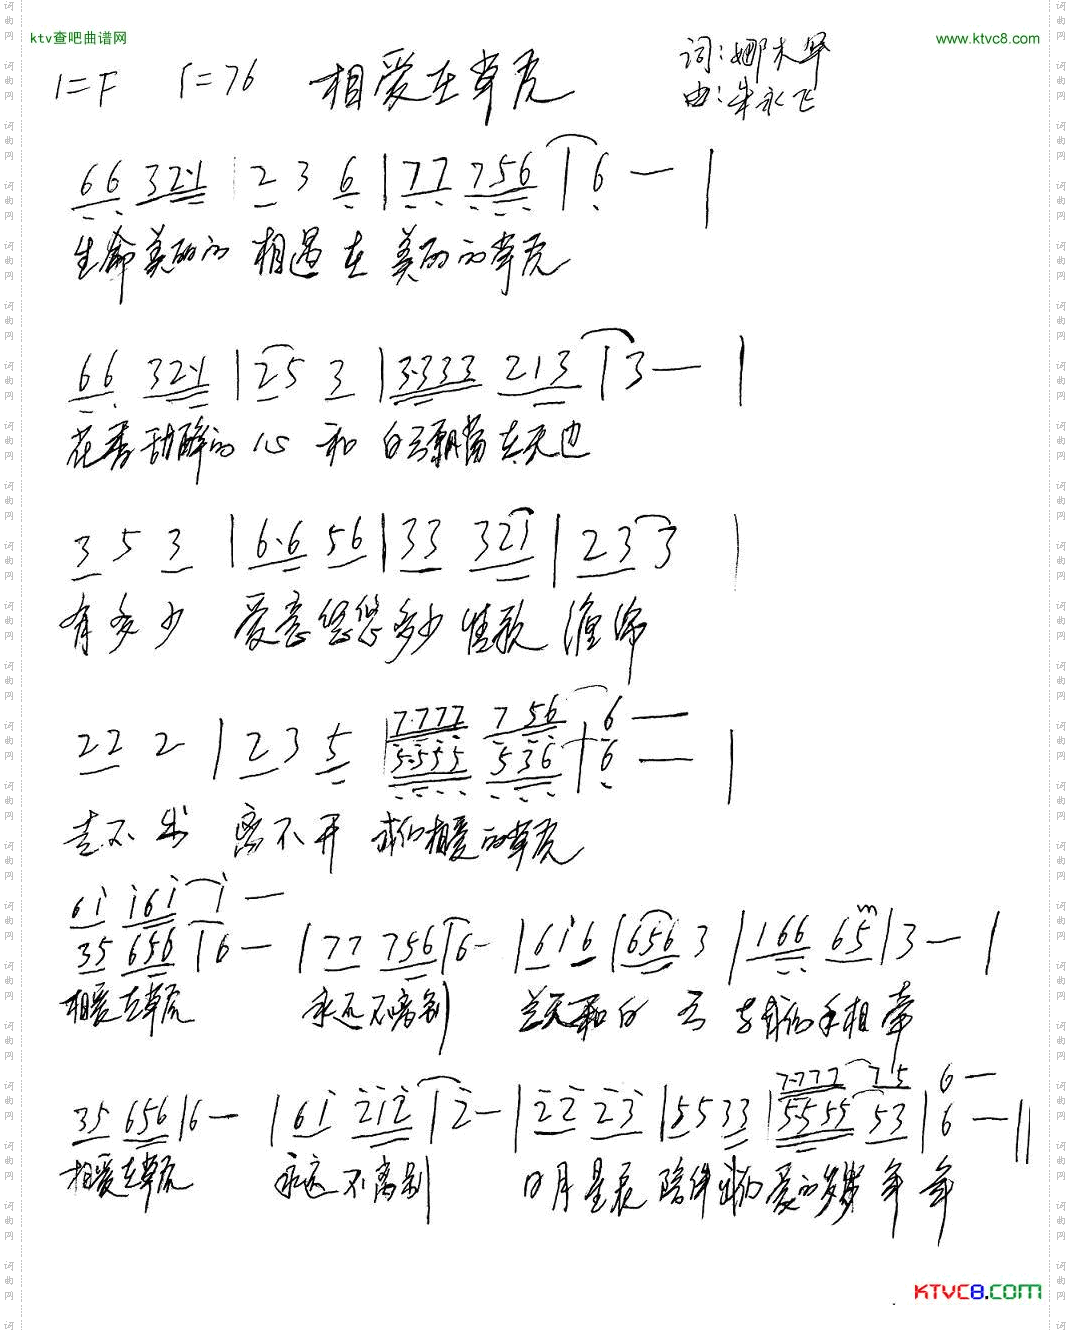 ktv查吧曲谱网
www.ktvc8.com
1=F ♩=76 相爱在草원
词:娜木罕
曲:朱永飞
66 32·1 | 2 3 6 | 77 756 | 6 — |
生命美丽的 相遇 在 美丽的草原
66 32·1 | 25 3 | 3·333 213 | 3 — |
花香甜醉的 心 和 白云飘荡在天边
3 5 3 | 6·6 56 | 33 321 | 23 3 |
有多少 爱意悠悠多少情歌
22 2 | 2 3 5 | 7·777 756 | 6 —
5·555 536 | 6 — |
走不出 离不开 我们相爱的草原
61 161 | 1 —
35 656 | 6 — | 77 756 | 6 - | 616 | 656 3 | 166 65 | 3 — |
相爱在草原 永远不离别 蓝天和白云 手相牵
7·777 75 6 —
35 656 | 6 — | 61 212 | 2 — | 22 23 | 55 33 | 5555 53 | 6 — ||
相爱在草原 永远不离别 日月星辰 陪伴我们爱的岁岁年年
KTVC8.COM